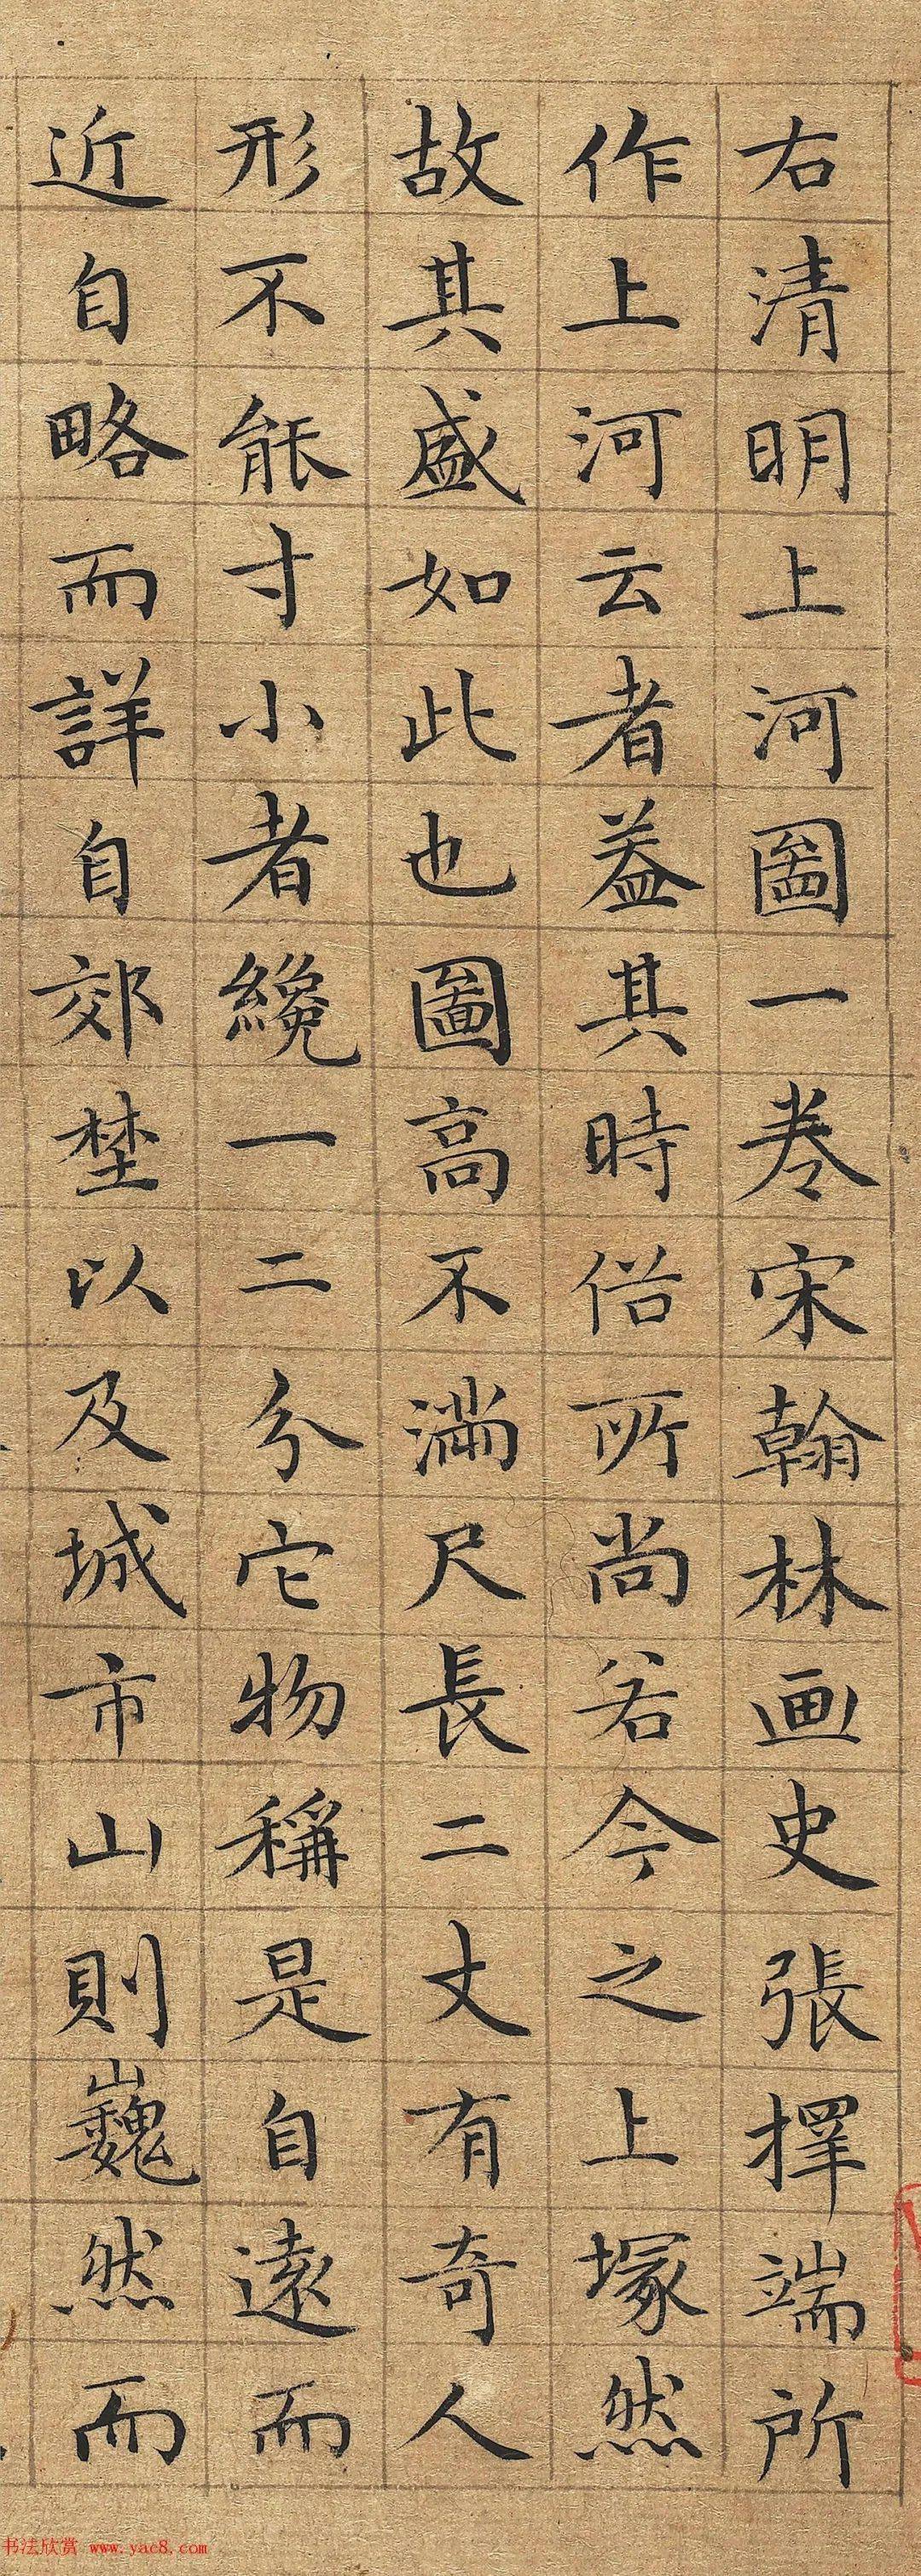 右清明上河圖一卷宋翰林画史張擇端所
作上河云者葢其時俗所尚若今之上塚然
故其盛如此也圖高不滿尺長二丈有奇人
形不能寸小者纔一二分它物稱是自遠而
近自略而詳自郊埜以及城市山則巍然而
书法欣赏 www.yac8.com